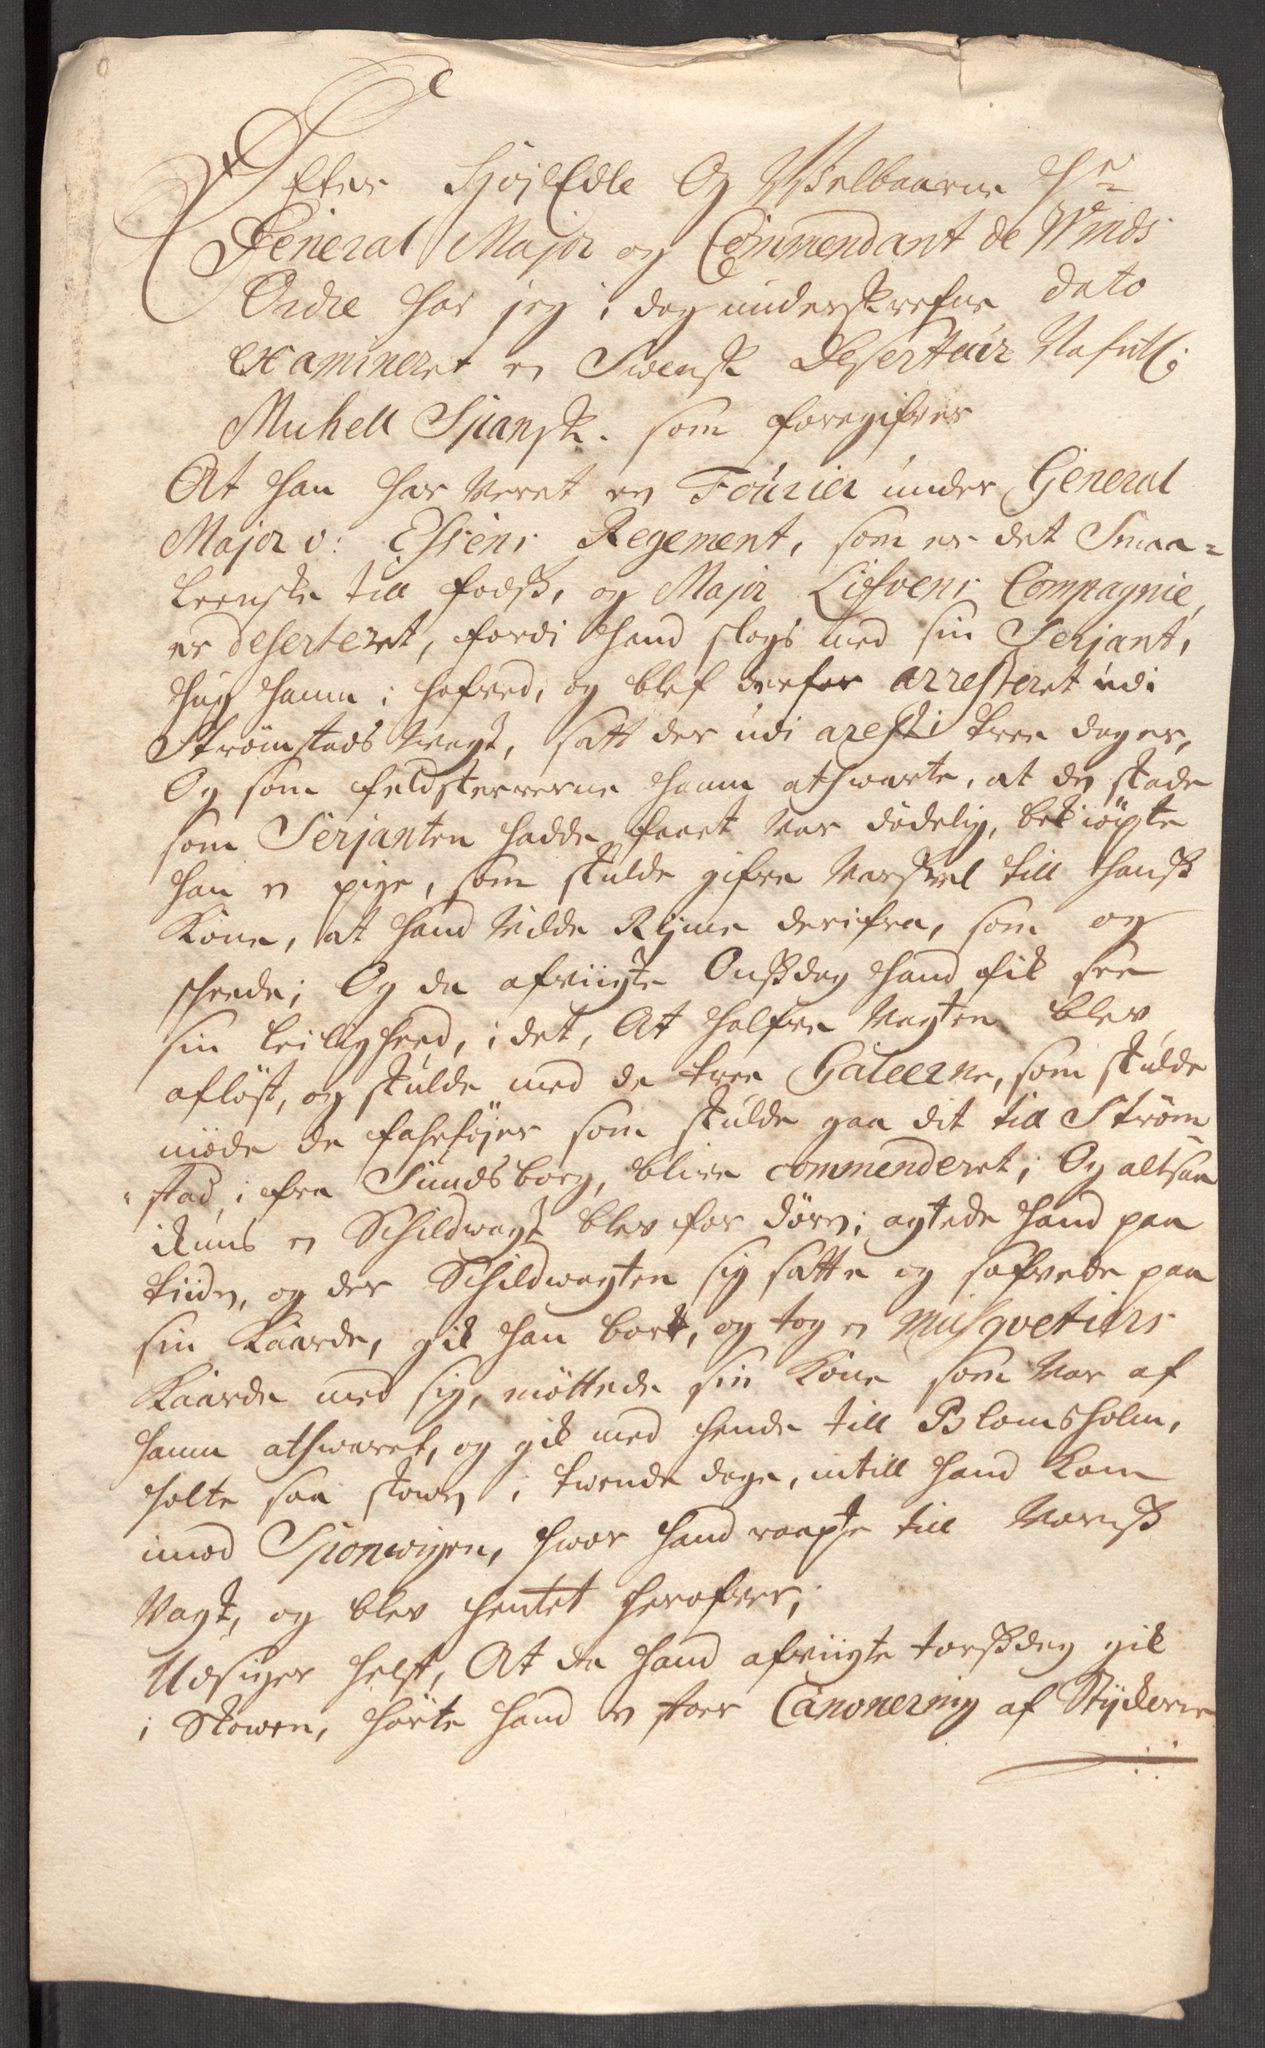 Efter HøjEdle Og Welbaarne Hr
General Major og Commendant de Winds
Ordre har jeg i dag underskrefne dato
Examineret en Swensk Deserteur Nafnl:
Michell Spansk. som foregifver
At han har veret en Fourier under General
Major v: Essens Regement, som er det Smaa-
leenske till fodsz, og Major Liefvens Compagnie,
er deserteret, fordi hand slogs med sin Serjant,
hug hannem i hofved, og blef derfor arresteret udi
Strømstads Wagt, satt der udi arest i tree dager,
Og som feldskererne hannem athwarte, at den skade
som Serjanten hadde faaet var dødelig, bekiøpte
han en pige, som skulde gifve Varskoel till hansz
Kone, at hand Vilde Rijme derifra, som og
skeede; Og da afvigte Onszdag hand fik see
sin leilighed, i det, At halfve Vagten blev
afløst, og skulde med de tree Galeerne, som skulde
møde de fahrtøjer som skulde gaa dit till Strøm
stad, i fra Sundsborg, blive commenderet; Og altsaa
ikuns en Schildwagt blev for dørn; agtede hand paa
tiiden, og der Schildwagten sig satte og sofvede paa
sin Kaarde, gik han bort, og tog en Musqvetiers
Kaarde med sig, møttede sin Kone som var af
hannem athwaret, og gik med hende till Blomsholm,
holte saa skowen i twende dage, intill hand kom
imod Sponwigen, hvor hand raapte till Voresz
Vagt, og blev hentet herofver;
Udsiger helst, At da hand afvigte torszdag gik
i Skowen, hørte hand en stoer Canonering af Stÿckerne